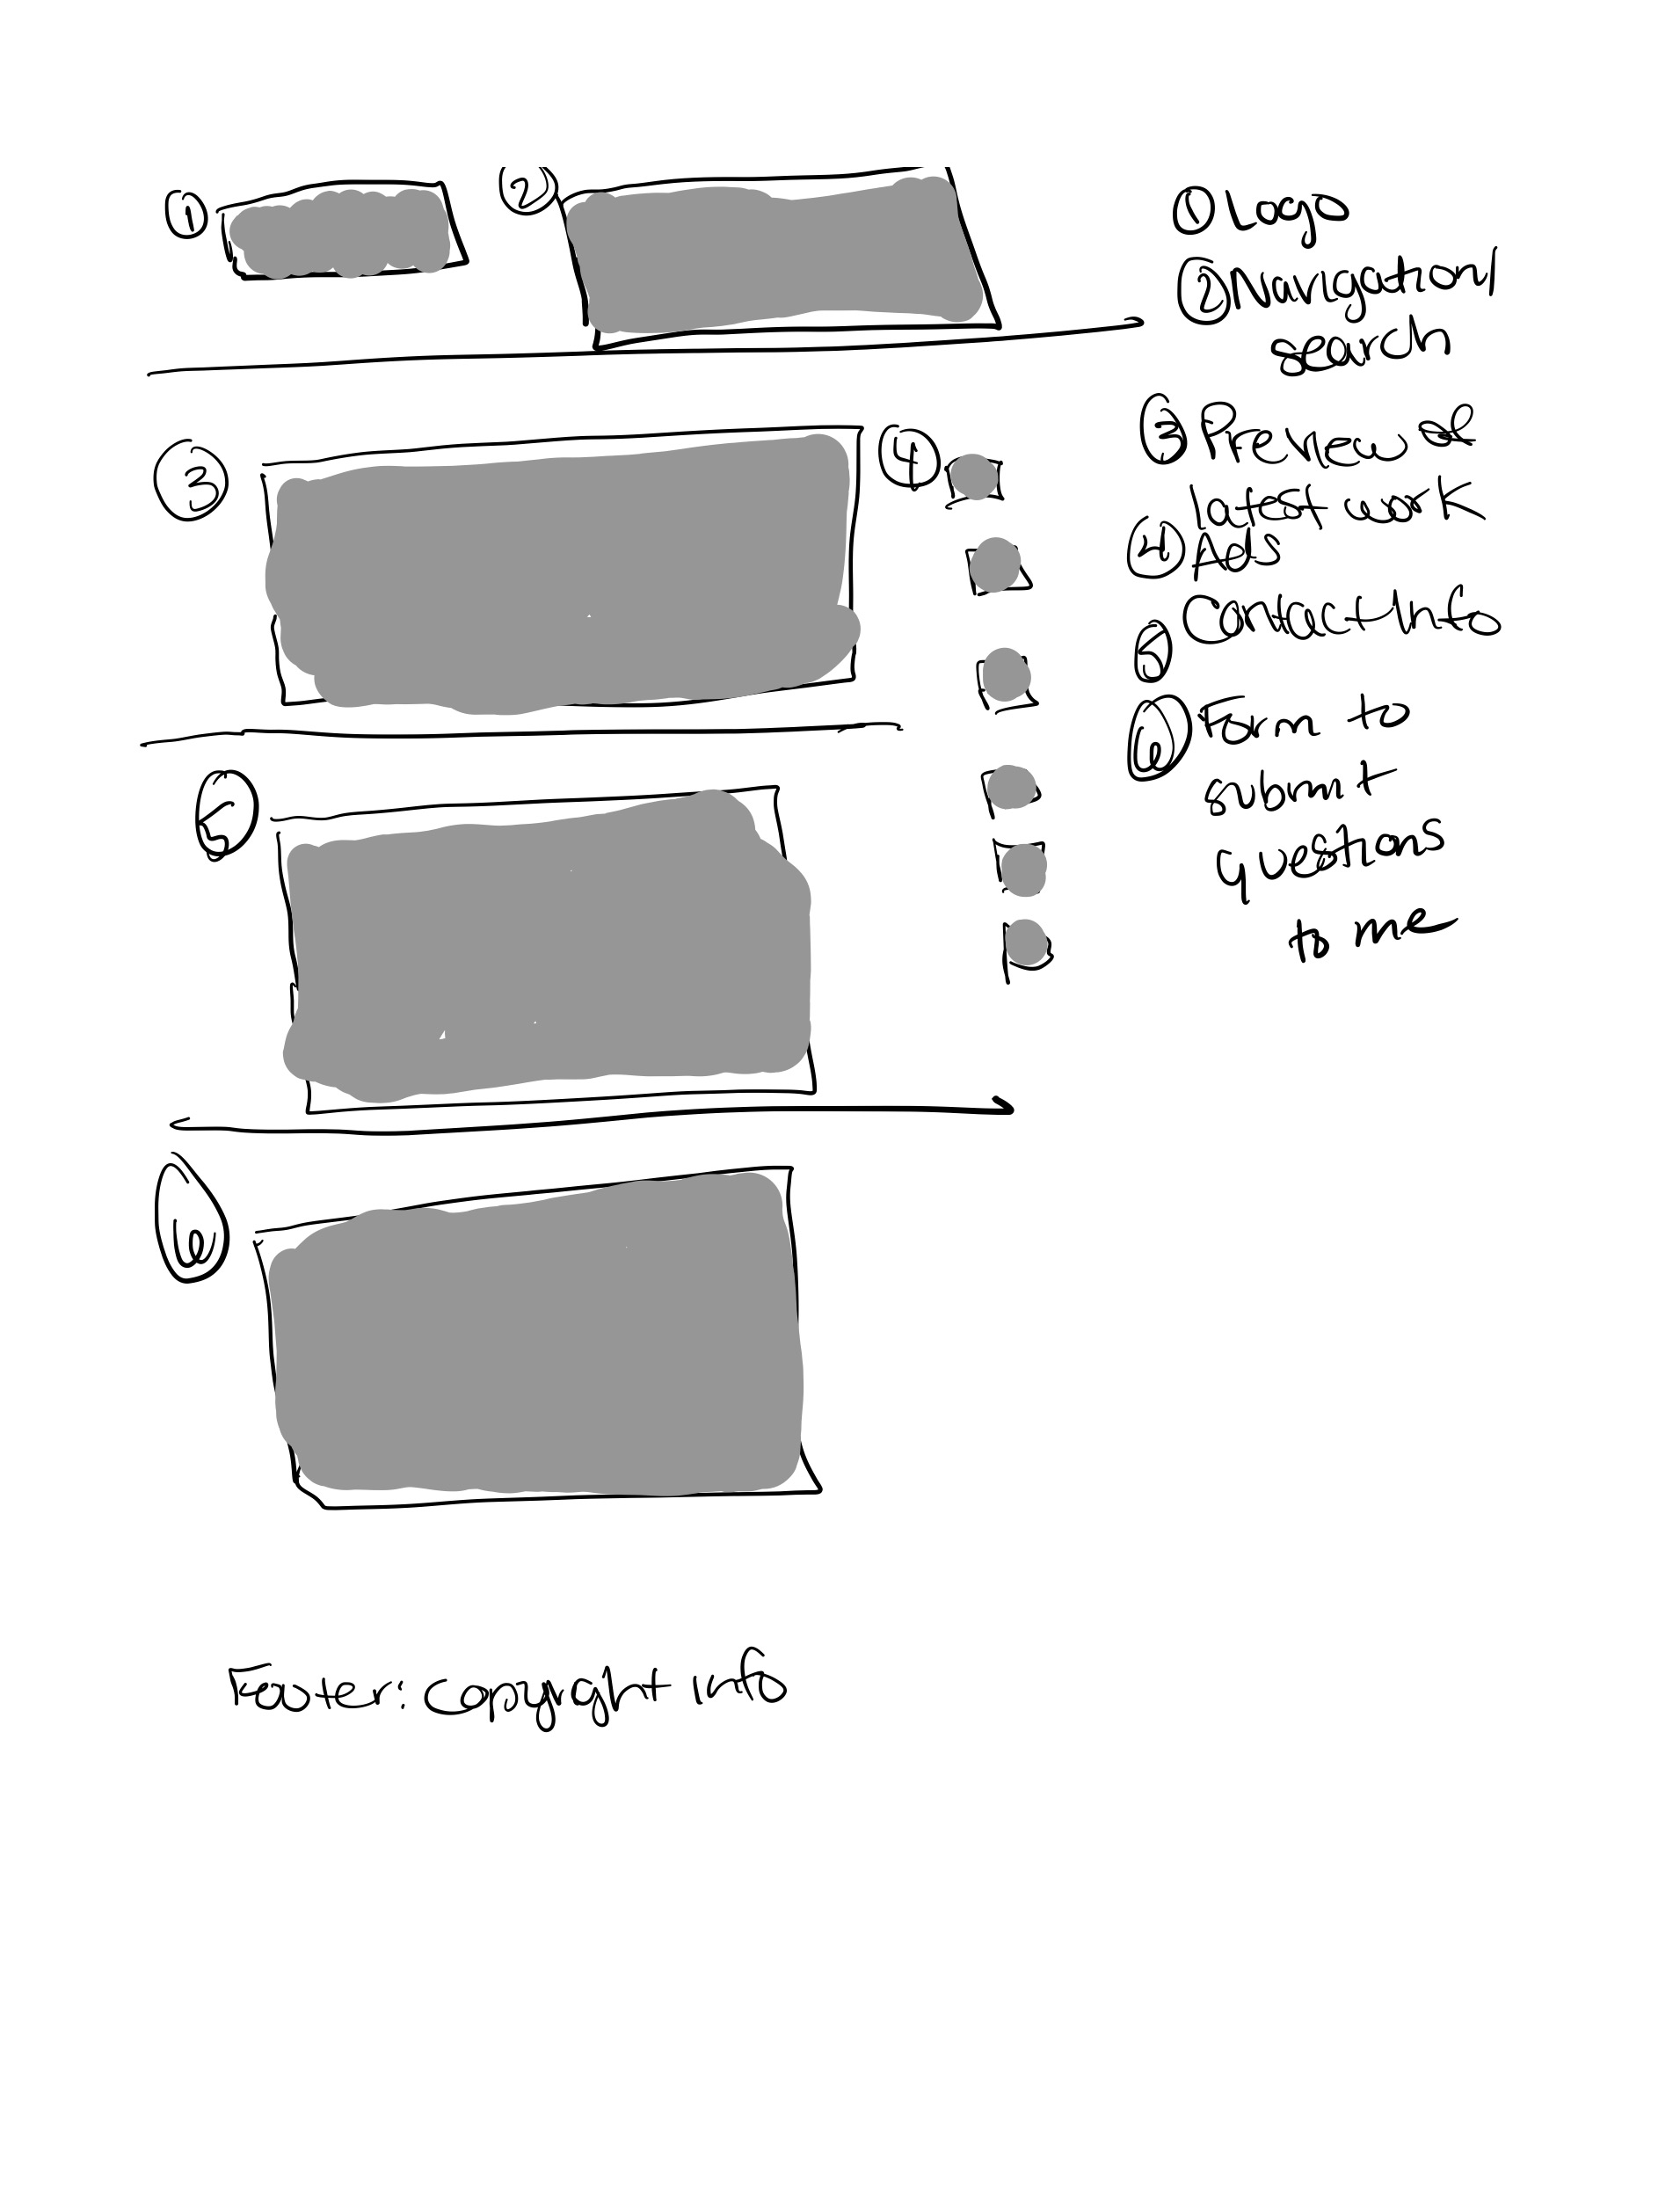 1
2
3
4
5
6
① Logo
② Navigation/
search
③ Preview of
latest work
④ Ads
⑤ Contact Info
⑥ Form to
submit
questions
to me
Footer: copyright info